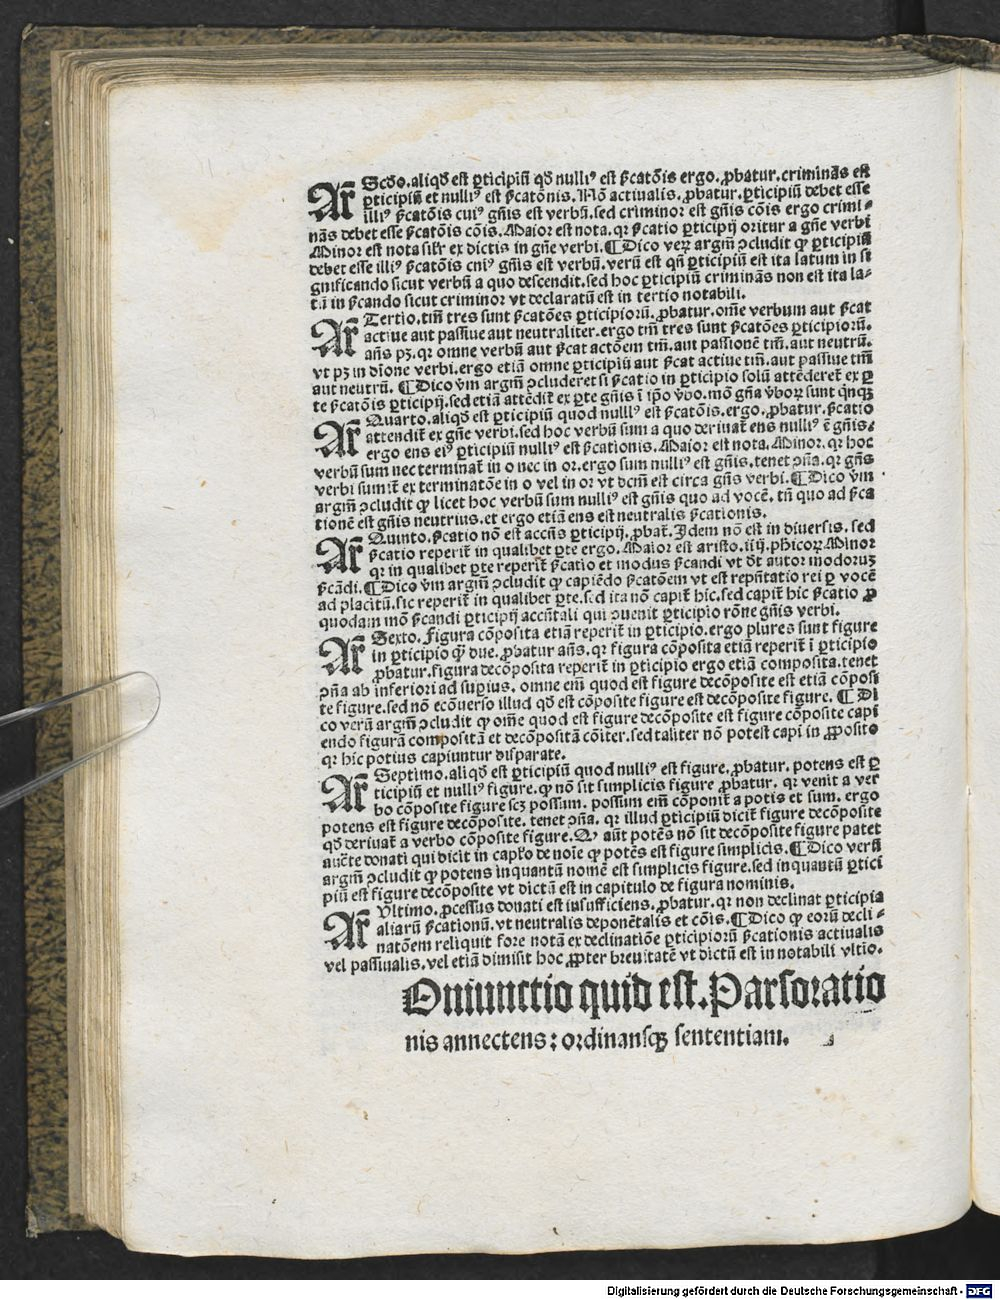 Ar̄ Scd̄o.aliqd̄ est ꝑticipiū qd̄ nulliꝰ est s̄catōis ergo.ꝓbatur.crimināns est
ꝑticipiū et nulliꝰ est s̄catōnis.Nō actiualis.ꝓbatur.ꝑticipiū debet esse
illiꝰ s̄catōis cuiꝰ gn̄is est verbū.sed criminor est gn̄is cōis ergo crimi-
nās debet esse s̄catōnis cōis.Maior est nota.qꝛ s̄catio ꝑticipij oritur a gn̄e verbi
Minor est nota silr̄ ex dictis in gn̄e verbi.¶Dico verꝝ argm̄ ꝯcludit ꝙ ꝑticipiū
debet esse illiꝰ s̄catōnis cniꝰ gn̄is est verbū.verū est qn̄ ꝑticipiū est ita latum in si
gnificando sicut verbū a quo descendit.sed hoc ꝑticipiū criminās non est ita la-
tū in s̄cando sicut criminor vt declaratū est in tertio notabili.
Ar̄ Tertio.tm̄ tres sunt s̄catōes ꝑticipiorū.ꝓbatur.om̄e verbum aut s̄cat
actiue aut passiue aut neutraliter.ergo tm̄ tres sunt s̄catōes ꝑticipiorū.
an̄s pꝫ.qꝛ omne verbū aut s̄cat actōem tm̄.aut passionē tm̄.aut neutrū.
vt pꝫ in dīone verbi.ergo etiā omne ꝑticipiū aut s̄cat actiue tm̄.aut passiue tm̄
aut neutrū.¶Dico v̄m argm̄ ꝯcluderet si s̄catio in ꝑticipio solū attēderet̄ ex ꝑ
te s̄catōis ꝑticipij.sed etiā attēdit̄ ex ꝑte gn̄is ī ip̄o v̄bo.mō gn̄a v̄boꝝ sunt qn̄qꝫ
Ar̄ Quarto.aliqd̄ est ꝑticipiū quod nulliꝰ est s̄catōis.ergo.ꝓbatur.s̄catio
attendit̄ ex gn̄e verbi.sed hoc verbū sum a quo deriuat̄ ens nulliꝰ ē gn̄is.
ergo ens eiꝰ ꝑticipiū nulliꝰ est s̄cationis.Maior est nota.Minor.qꝛ hoc
verbū sum nec terminat̄ in o nec in or.ergo sum nulliꝰ est gn̄is.tenet ꝯn̄a.qꝛ gn̄s
verbi sumit̄ ex terminatōe in o vel in or vt dcm̄ est circa gn̄s verbi.¶Dico v̄m
argm̄ ꝯcludit ꝙ licet hoc verbū sum nulliꝰ est gn̄is quo ad vocē.tn̄ quo ad s̄ca
tionē est gn̄is neutrius.et ergo etiā ens est neutralis s̄cationis.
Ar̄ Quinto.s̄catio nō est accn̄s ꝑticipij.ꝓbat̄.Idem nō est in diuersis.sed
s̄catio reperit̄ in qualibet ꝑte ergo.Maior est aristo.iiij.ph̄icoꝝ.Minor
qꝛ in qualibet ꝑte reperit̄ s̄catio et modus s̄candi vt dt̄ autor modoruꝫ
s̄cādi.¶Dico v̄m argm̄ ꝯcludit ꝙ capiēdo s̄catōem vt est repn̄tatio rei ꝑ vocē
ad placitū.sic reperit̄ in qualibet ꝑte.sed ita nō capit̄ hic.sed capit̄ hic s̄catio ꝓ
quodam mō s̄candi ꝑticipij accn̄tali qui ꝓuenit ꝑticipio rōne gn̄is verbi.
Ar̄ Sexto.Figura cōposita etiā reperit̄ in ꝑticipio.ergo plures sunt figure
in ꝑticipio ꝙ̄ due.ꝓbatur an̄s.qꝛ figura cōposita etiā reperit̄ ī ꝑticipio
ꝓbatur.figura decōposita reperit̄ in ꝑticipio ergo etiā composita.tenet
ꝯn̄a ab inferiori ad suꝑius.omne em̄ quod est figure decōposite est etiā cōposi
te figure.sed nō ecōuerso illud qd̄ est cōposite figure est decōposite figure.¶Di
co verū argm̄ ꝯcludit ꝙ om̄e quod est figure decōposite est figure cōposite capi
endo figurā compositā et decōpositā cōiter.sed taliter nō potest capi in ꝓposito
qꝛ hic potius capiuntur disparate.
Ar̄ Septimo.aliqd̄ est ꝑticipiū quod nulliꝰ est figure.ꝓbatur.potens est ꝑ
ticipiū et nulliꝰ figure.ꝙ nō sit simplicis figure ꝓbatur.qꝛ venit a ver
bo cōposite figure scꝫ possum.possum em̄ cōponit̄ a potis et sum.ergo
potens est figure decōposite.tenet ꝯn̄a.qꝛ illud ꝑticipiū dicit̄ figure decōposite
qd̄ deriuat̄ a verbo cōposite figure.Qꝙ aūt potēs nō sit decōposite figure patet
auc̄te donati qui dicit in capło de noīe ꝙ potēs est figure simplicis.¶Dico verū
argm̄ ꝯcludit ꝙ potens inquantū nomē est simplicis figure.sed inquantū ꝑtici
piū est figure decōposite vt dictū est in capitulo de figura nominis.
Ar̄ Vltimo.ꝓcessus donati est insufficiens.ꝓbatur.qꝛ non declinat ꝑticipia
aliarū s̄cationū.vt neutralis deponētalis et cōis.¶Dico ꝙ eorū decli-
natōem reliquit fore notā ex declinatiōe ꝑticipiorū s̄cationis actiualis
vel passiualis.vel etiā dimisit hoc ꝓpter breuitatē vt dictū est in notabili vltio.
Oniunctio quid est.Pars oratio
nis annectens: ordinansqꝫ sententiam.
Digitalisierung gefördert durch die Deutsche Forschungsgemeinschaft - DFG